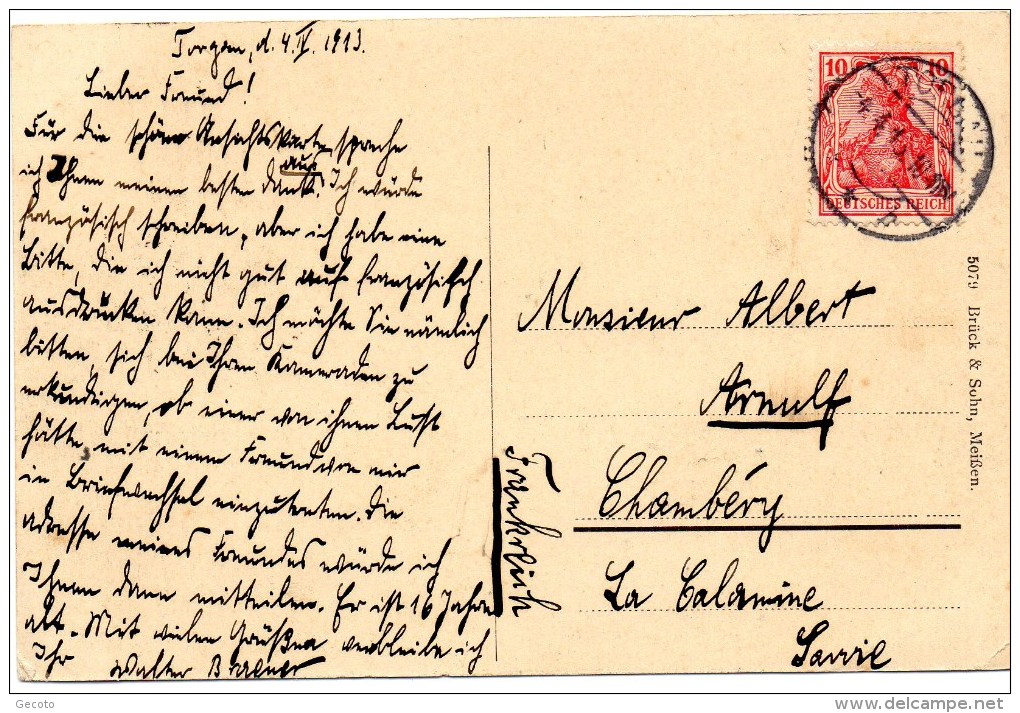 Torgau, d. 4. IV. 1913.
Lieber Freund!
Für die schöne Ansichtskarte spreche
ich Ihnen meinen besten Dank aus. Ich würde
französisch schreiben, aber ich habe eine
Bitte, die ich nicht gut auf französisch
ausdrucken kann. Ich möchte Sie nämlich
bitten, sich bei Ihren Kameraden zu
erkundigen, ob einer von ihnen Lust
hätte mit einem Freund von mir
in Briefwechsel einzutreten. Die
Adresse meines Freundes würde ich
Ihnen dann mitteilen. Er ist 16 Jahre
alt. Mit vielen Grüßen verbleibe ich
Ihr Walter
10 10
DEUTSCHES REICH
Monsieur Albert
Arnulf
Chambéry
La Calamine
Savoie
Frankreich
5079 Brück & Sohn, Meißen.
Gecoto
delcampe.net